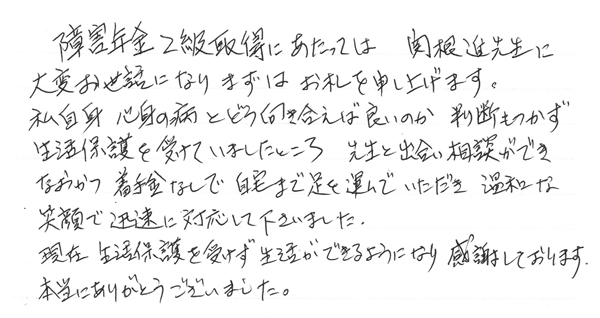 障害年金2級取得にあたっては 関根進先生に
大変お世話になり まずは お礼を申し上げます。
私自身 心身の病とどう向き合えば良いのか 判断もつかず
生活保護を受けていましたところ 先生と出会い相談ができ
なおかつ 着手金なしで 自宅まで足を運んでいただき 温和な
笑顔で迅速に対応して下さいました。
現在 生活保護を受けず生活ができるようになり 感謝しております。
本当にありがとうございました。